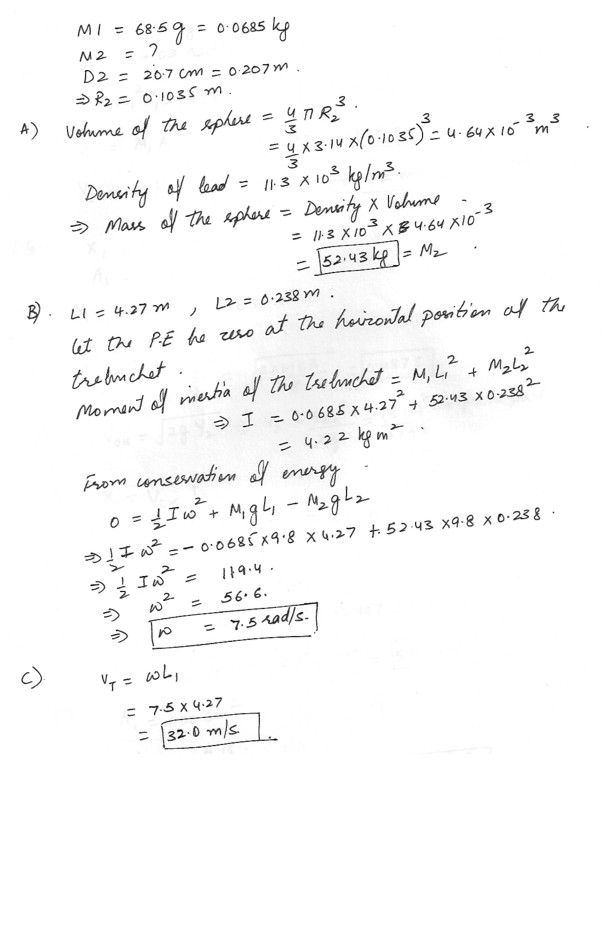 M1 = 68.5 g = 0.0685 kg
M2 = ?
D2 = 20.7 cm = 0.207 m.
⇒ R2 = 0.1035 m.
A) Volume of the sphere = 4/3 π R₂³.
= 4/3 × 3.14 × (0.1035)³ = 4.64 × 10⁻³ m³.
Density of lead = 11.3 × 10³ kg/m³.
⇒ Mass of the sphere = Density × Volume.
= 11.3 × 10³ × 4.64 × 10⁻³
= 52.43 kg = M₂.
B). L1 = 4.27 m, L2 = 0.238 m.
Let the P.E be zero at the hoirzontal position of the
trebuchet.
Moment of inertia of the trebuchet = M₁L₁² + M₂L₂²
⇒ I = 0.0685 × 4.27² + 52.43 × 0.238²
= 4.22 kg m².
From conservation of energy.
0 = 1/2 Iω² + M₁gL₁ − M₂gL₂
⇒ 1/2 I ω² = − 0.0685 × 9.8 × 4.27 + 52.43 × 9.8 × 0.238.
⇒ 1/2 Iω² = 119.4.
⇒ ω² = 56.6.
⇒ ω = 7.5 rad/s.
C) V_T = ωL₁
= 7.5 × 4.27
= 32.0 m/s.